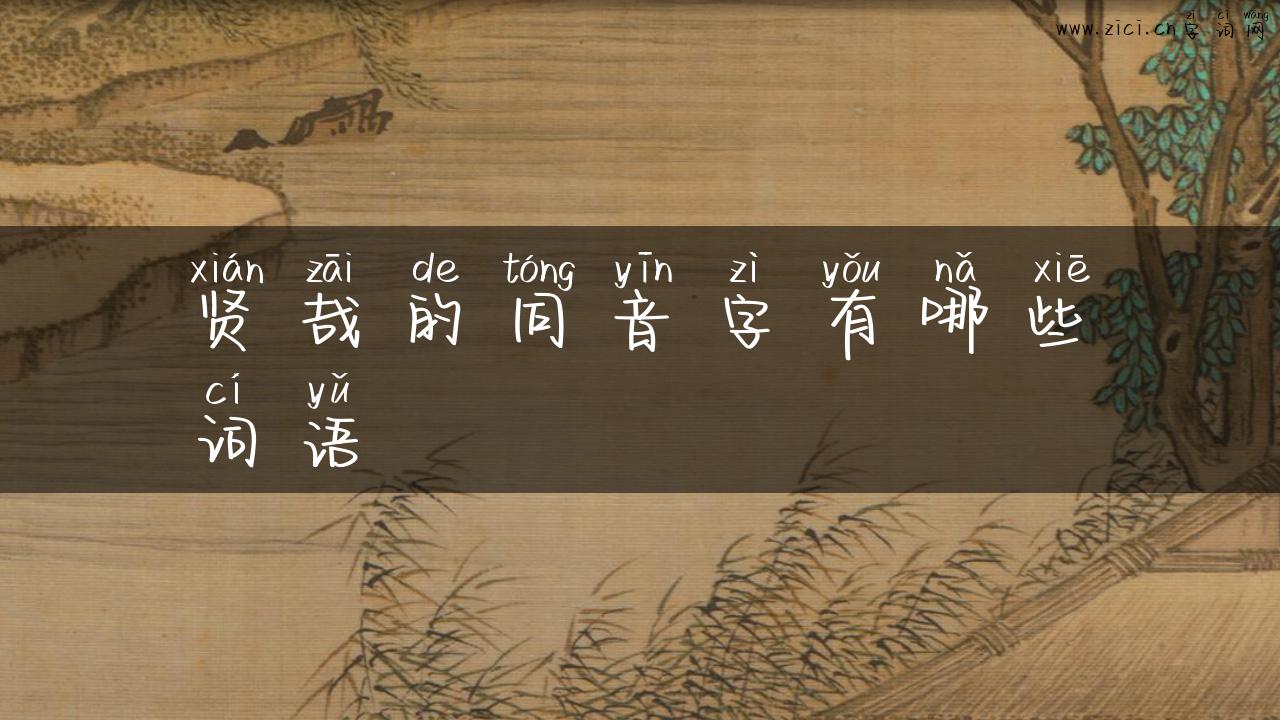 zì cí wǎng
www.zici.cn字词网
xián zāi de tóng yīn zì yǒu nǎ xiē
贤哉的同音字有哪些
cí yǔ
词语